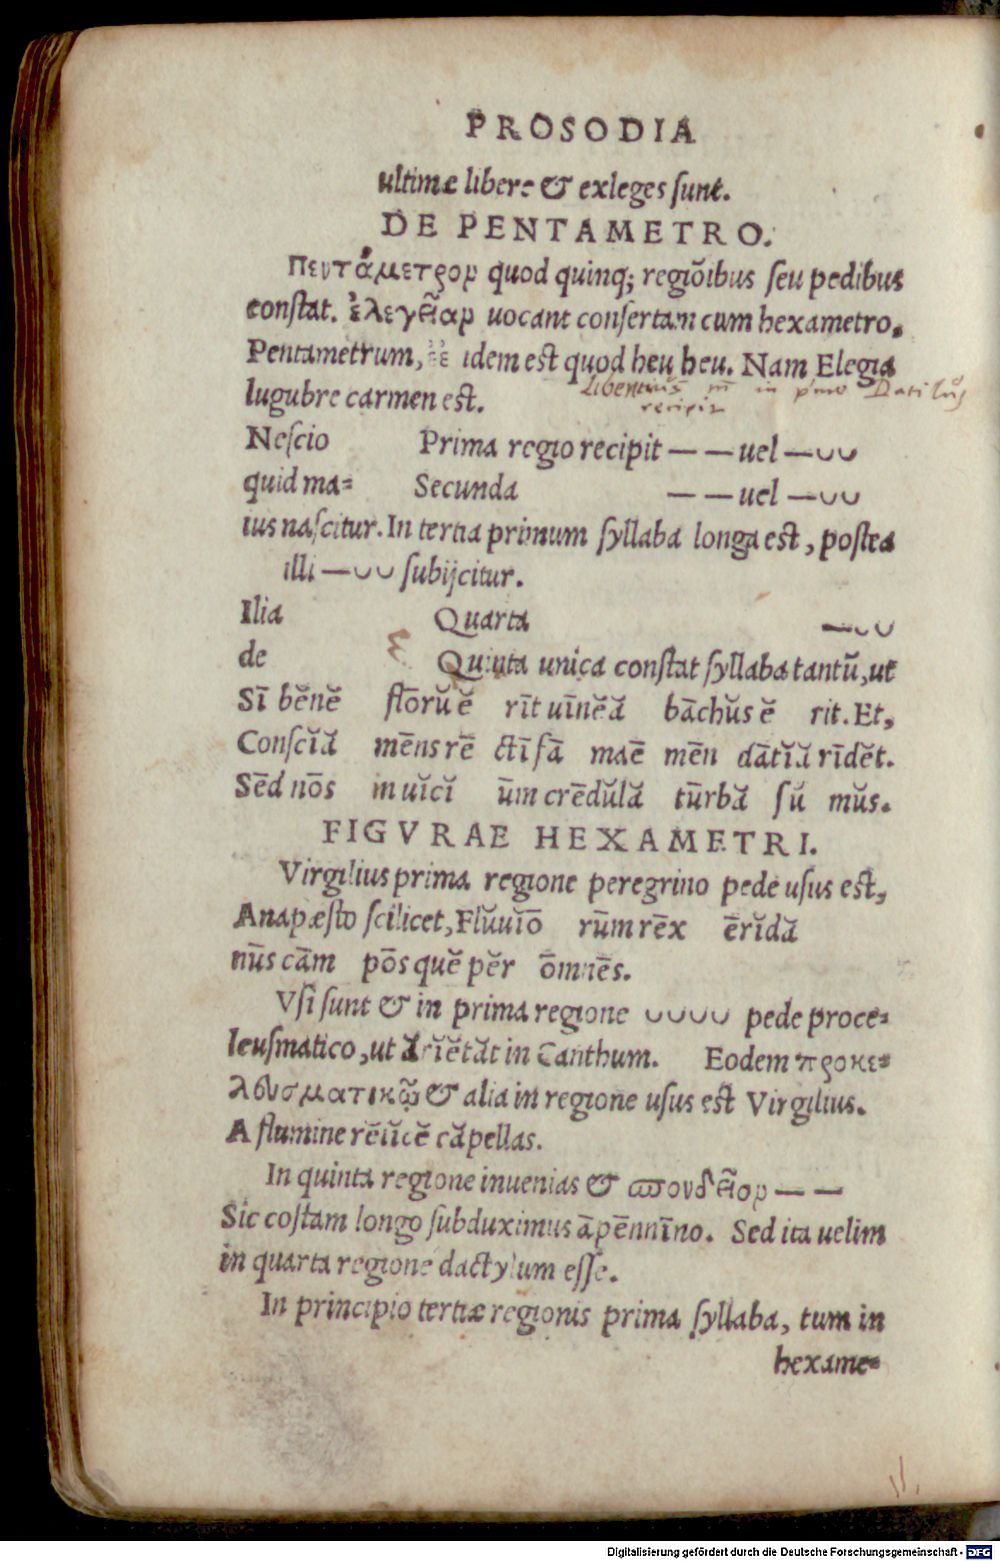 PROSODIA
ultimæ liberæ & exleges sunt.
DE PENTAMETRO.
Πεντάμετρον quod quinq; regiōibus seu pedibus
constat. ἐλεγεῖαν uocant consertam cum hexametro.
Pentametrum, ἒ ἒ idem est quod heu heu. Nam Elegia
lugubre carmen est.
Libentius in primo Dactilus
recipit
Nescio Prima regio recipit — — uel —◡◡
quid ma= Secunda — — uel —◡◡
ius nascitur. In tertia primum syllaba longa est, postea
illi —◡◡ subijcitur.
Ilia Quarta —◡◡
de Quinta unica constat syllaba tantū, ut
Sī bĕnĕ flōrŭĕ rīt uīnĕă bāchŭs ĕ rit. Et,
Conscĭă mēns rē ctī fā maē mēn dātĭă rīdĕt.
Sēd nōs in uĭcĭ ūm crēdŭlă tūrbă sŭ mŭs.
FIGVRAE HEXAMETRI.
Virgilius prima regione peregrino pede usus est,
Anapæsto scilicet, Flŭuĭō rūm rēx ērĭdă
nūs cām pōs quĕ pĕr ōmnēs.
Vsi sunt & in prima regione ◡◡◡◡ pede proce=
leusmatico, ut ărĭĕtăt in Canthum. Eodem προκε=
λευσματικῷ & alia in regione usus est Virgilius.
A flumine rēĭĭcĕ căpellas.
In quinta regione inuenias & σπονδεῖον — —
Sic costam longo subduximus āpēnnīno. Sed ita uelim
in quarta regione dactylum esse.
In principio tertiæ regionis prima syllaba, tum in
hexame=
Digitalisierung gefördert durch die Deutsche Forschungsgemeinschaft - DFG